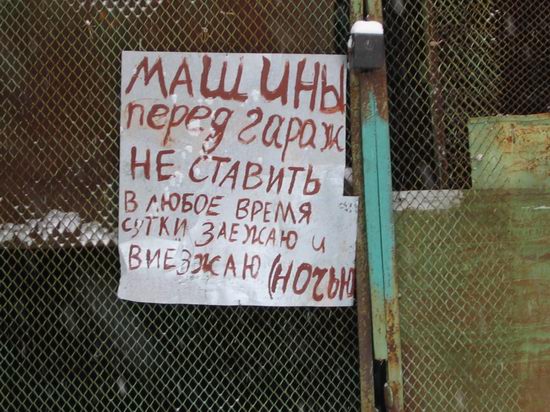 МАШИНЫ
перед гараж
НЕ СТАВИТЬ
В ЛЮБОЕ ВРЕМЯ
СУТКИ ЗАЕЖАЮ И
ВИЕЗЖАЮ (НОЧЬЮ